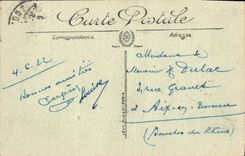 Carte Postale
Correspondance
Adresse
4.6.22
Bonnes amitiés
Madame &
Monsieur Dulac
3, rue Granet
à Aix-en-
Bouches du Rhône